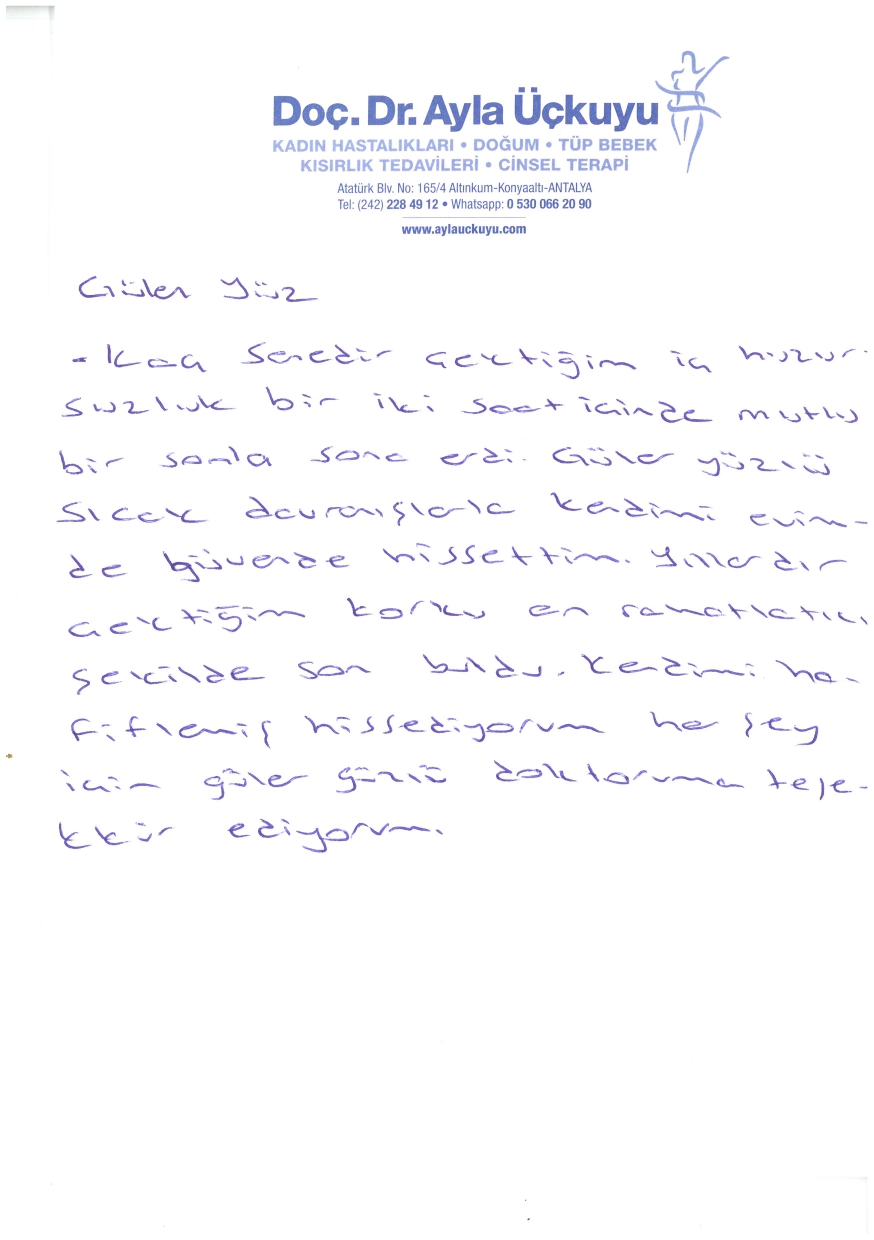 Doç. Dr. Ayla Üçkuyu
KADIN HASTALIKLARI • DOĞUM • TÜP BEBEK
KISIRLIK TEDAVİLERİ • CİNSEL TERAPİ
Atatürk Blv. No: 165/4 Altınkum-Konyaaltı-ANTALYA
Tel: (242) 228 49 12 • Whatsapp: 0 530 066 20 90
www.aylauckuyu.com
Güler Yüz
- Kaç senedir çektiğim iç huzur-
suzluk bir iki saat içinde mutlu
bir sonla sona erdi. Güler yüzlü
sıcak davranışlarla kendimi evim-
de güvende hissettim. Yıllardır
çektiğim korku en rahatlatıcı
şekilde son buldu. Kendimi ha-
fiflemiş hissediyorum her şey
için güler yüzlü doktoruma teşe-
kkür ediyorum.